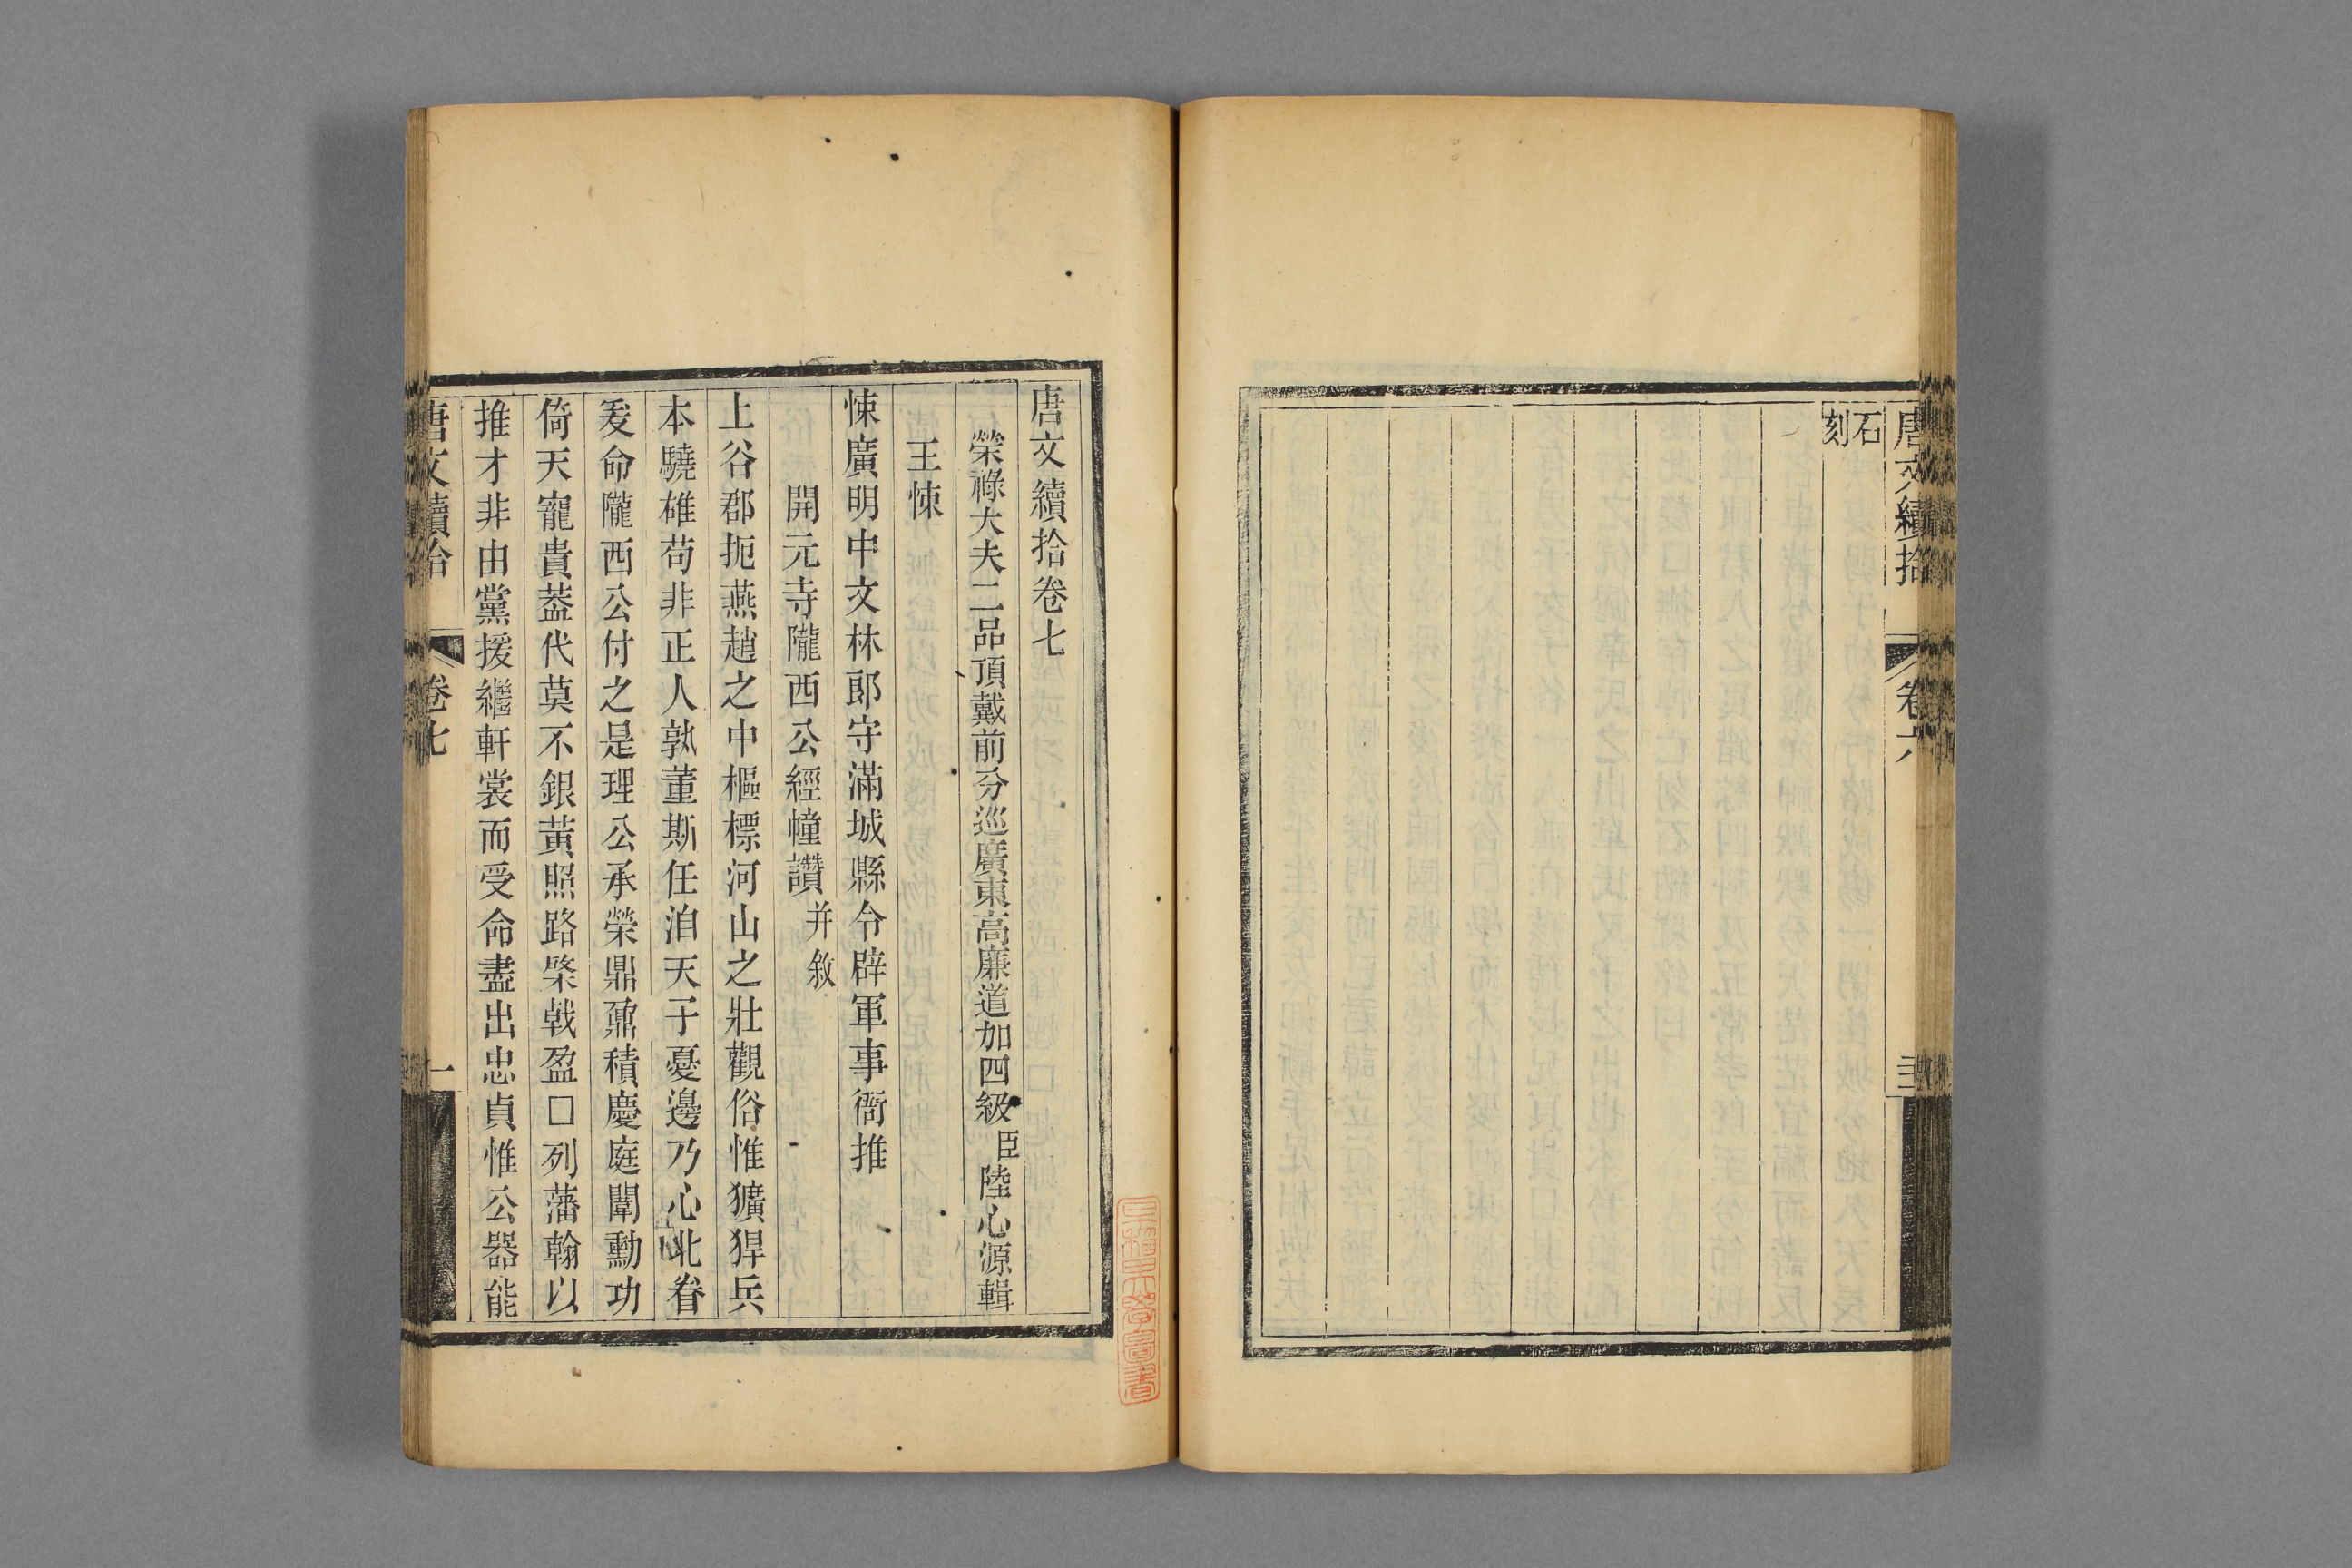 唐文續拾
卷六
石
刻
唐文續拾卷七
榮祿大夫二品頂戴前分巡廣東高廉道加四級臣陸心源輯
王悚
悚廣明中文林郎守滿城縣令辟軍事衙推
開元寺隴西公經幢讚并敘
上谷郡扼燕趙之中樞標河山之壯觀俗惟獷猂兵
本驍雄苟非正人孰董斯任洎天子憂邊乃心北眷
爰命隴西公付之是理公承榮鼎鼐積慶庭闈勳功
倚天寵貴葢代莫不銀黃照路棨戟盈□列藩翰以
推才非由黨援繼軒裳而受命盡出忠貞惟公器能
唐文續拾
卷七
一